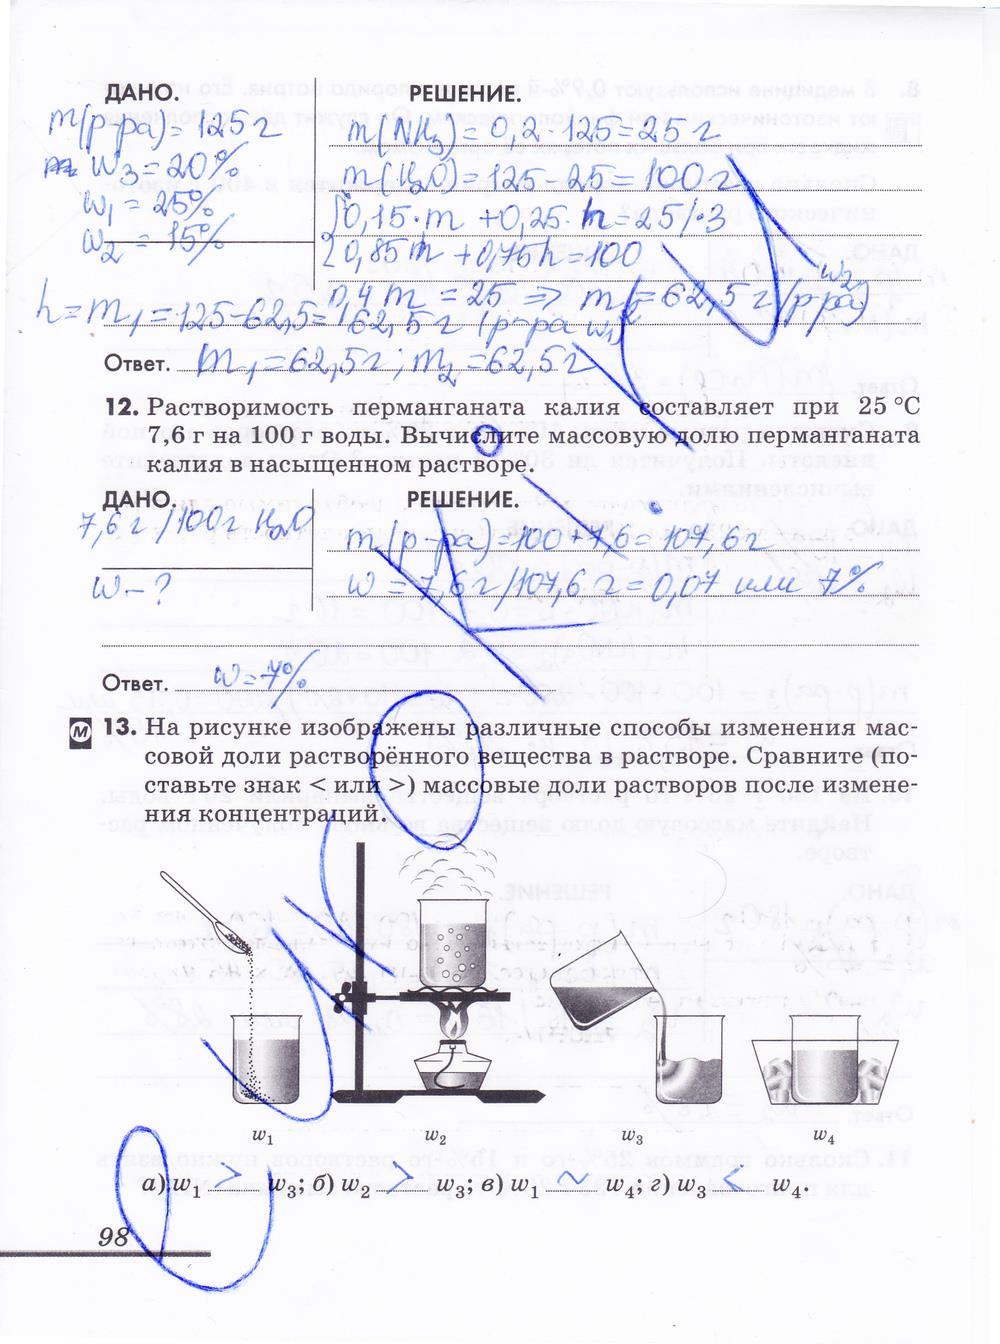 ДАНО. РЕШЕНИЕ.
m(р-ра) = 125 г m(NH₃) = 0,2 · 125 = 25 г
w₃ = 20% m(H₂O) = 125 - 25 = 100 г
w₁ = 25% 0,15·m + 0,25·n = 25 | ·3
w₂ = 15% 0,85m + 0,75n = 100
0,4m = 25 => m = 62,5 г (р-ра) w₂
n = m₁ = 125 - 62,5 = 162,5 г (р-ра w₁)
Ответ. m₁ = 62,5 г; m₂ = 62,5 г
12. Растворимость перманганата калия составляет при 25 °С
7,6 г на 100 г воды. Вычислите массовую долю перманганата
калия в насыщенном растворе.
ДАНО. РЕШЕНИЕ.
7,6 г / 100 г H₂O m(р-ра) = 100 + 7,6 = 107,6 г
w - ? w = 7,6 г / 107,6 г = 0,07 или 7%
Ответ. w = 7%
М 13. На рисунке изображены различные способы изменения мас-
совой доли растворённого вещества в растворе. Сравните (по-
ставьте знак < или >) массовые доли растворов после измене-
ния концентраций.
w₁ w₂ w₃ w₄
а) w₁ > w₃; б) w₂ > w₃; в) w₁ w₄; г) w₃ < w₄.
98